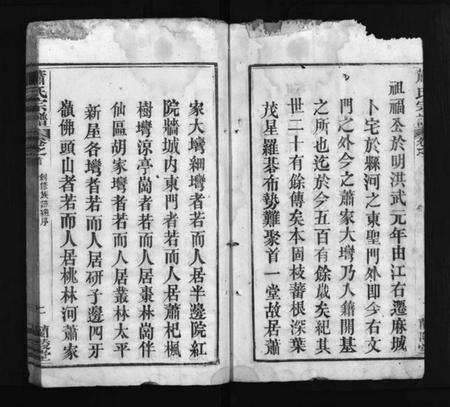 祖福公於明洪武元年由江右遷麻城
卜宅於縣河之東聖門外即今右文
門之外今之蕭家大塆乃入籍開基
之所也迄於今五百有餘歲矣紀其
世二十有餘傳矣本固枝蕃根深葉
茂星羅碁布勢難聚首一堂故居蕭
家大塆細塆者若而人居半邊院紅
院牆城內東門者若而人居蕭杷楓
樹塆涼亭崗者若而人居棗林崗伴
仙區胡家塆者若而人居叢林太平
新屋各塆者若而人居研子邊四牙
嶺佛頭山者若而人居桃林河蕭家
蕭氏宗譜
卷之首
創修族譜序
蘭陵堂